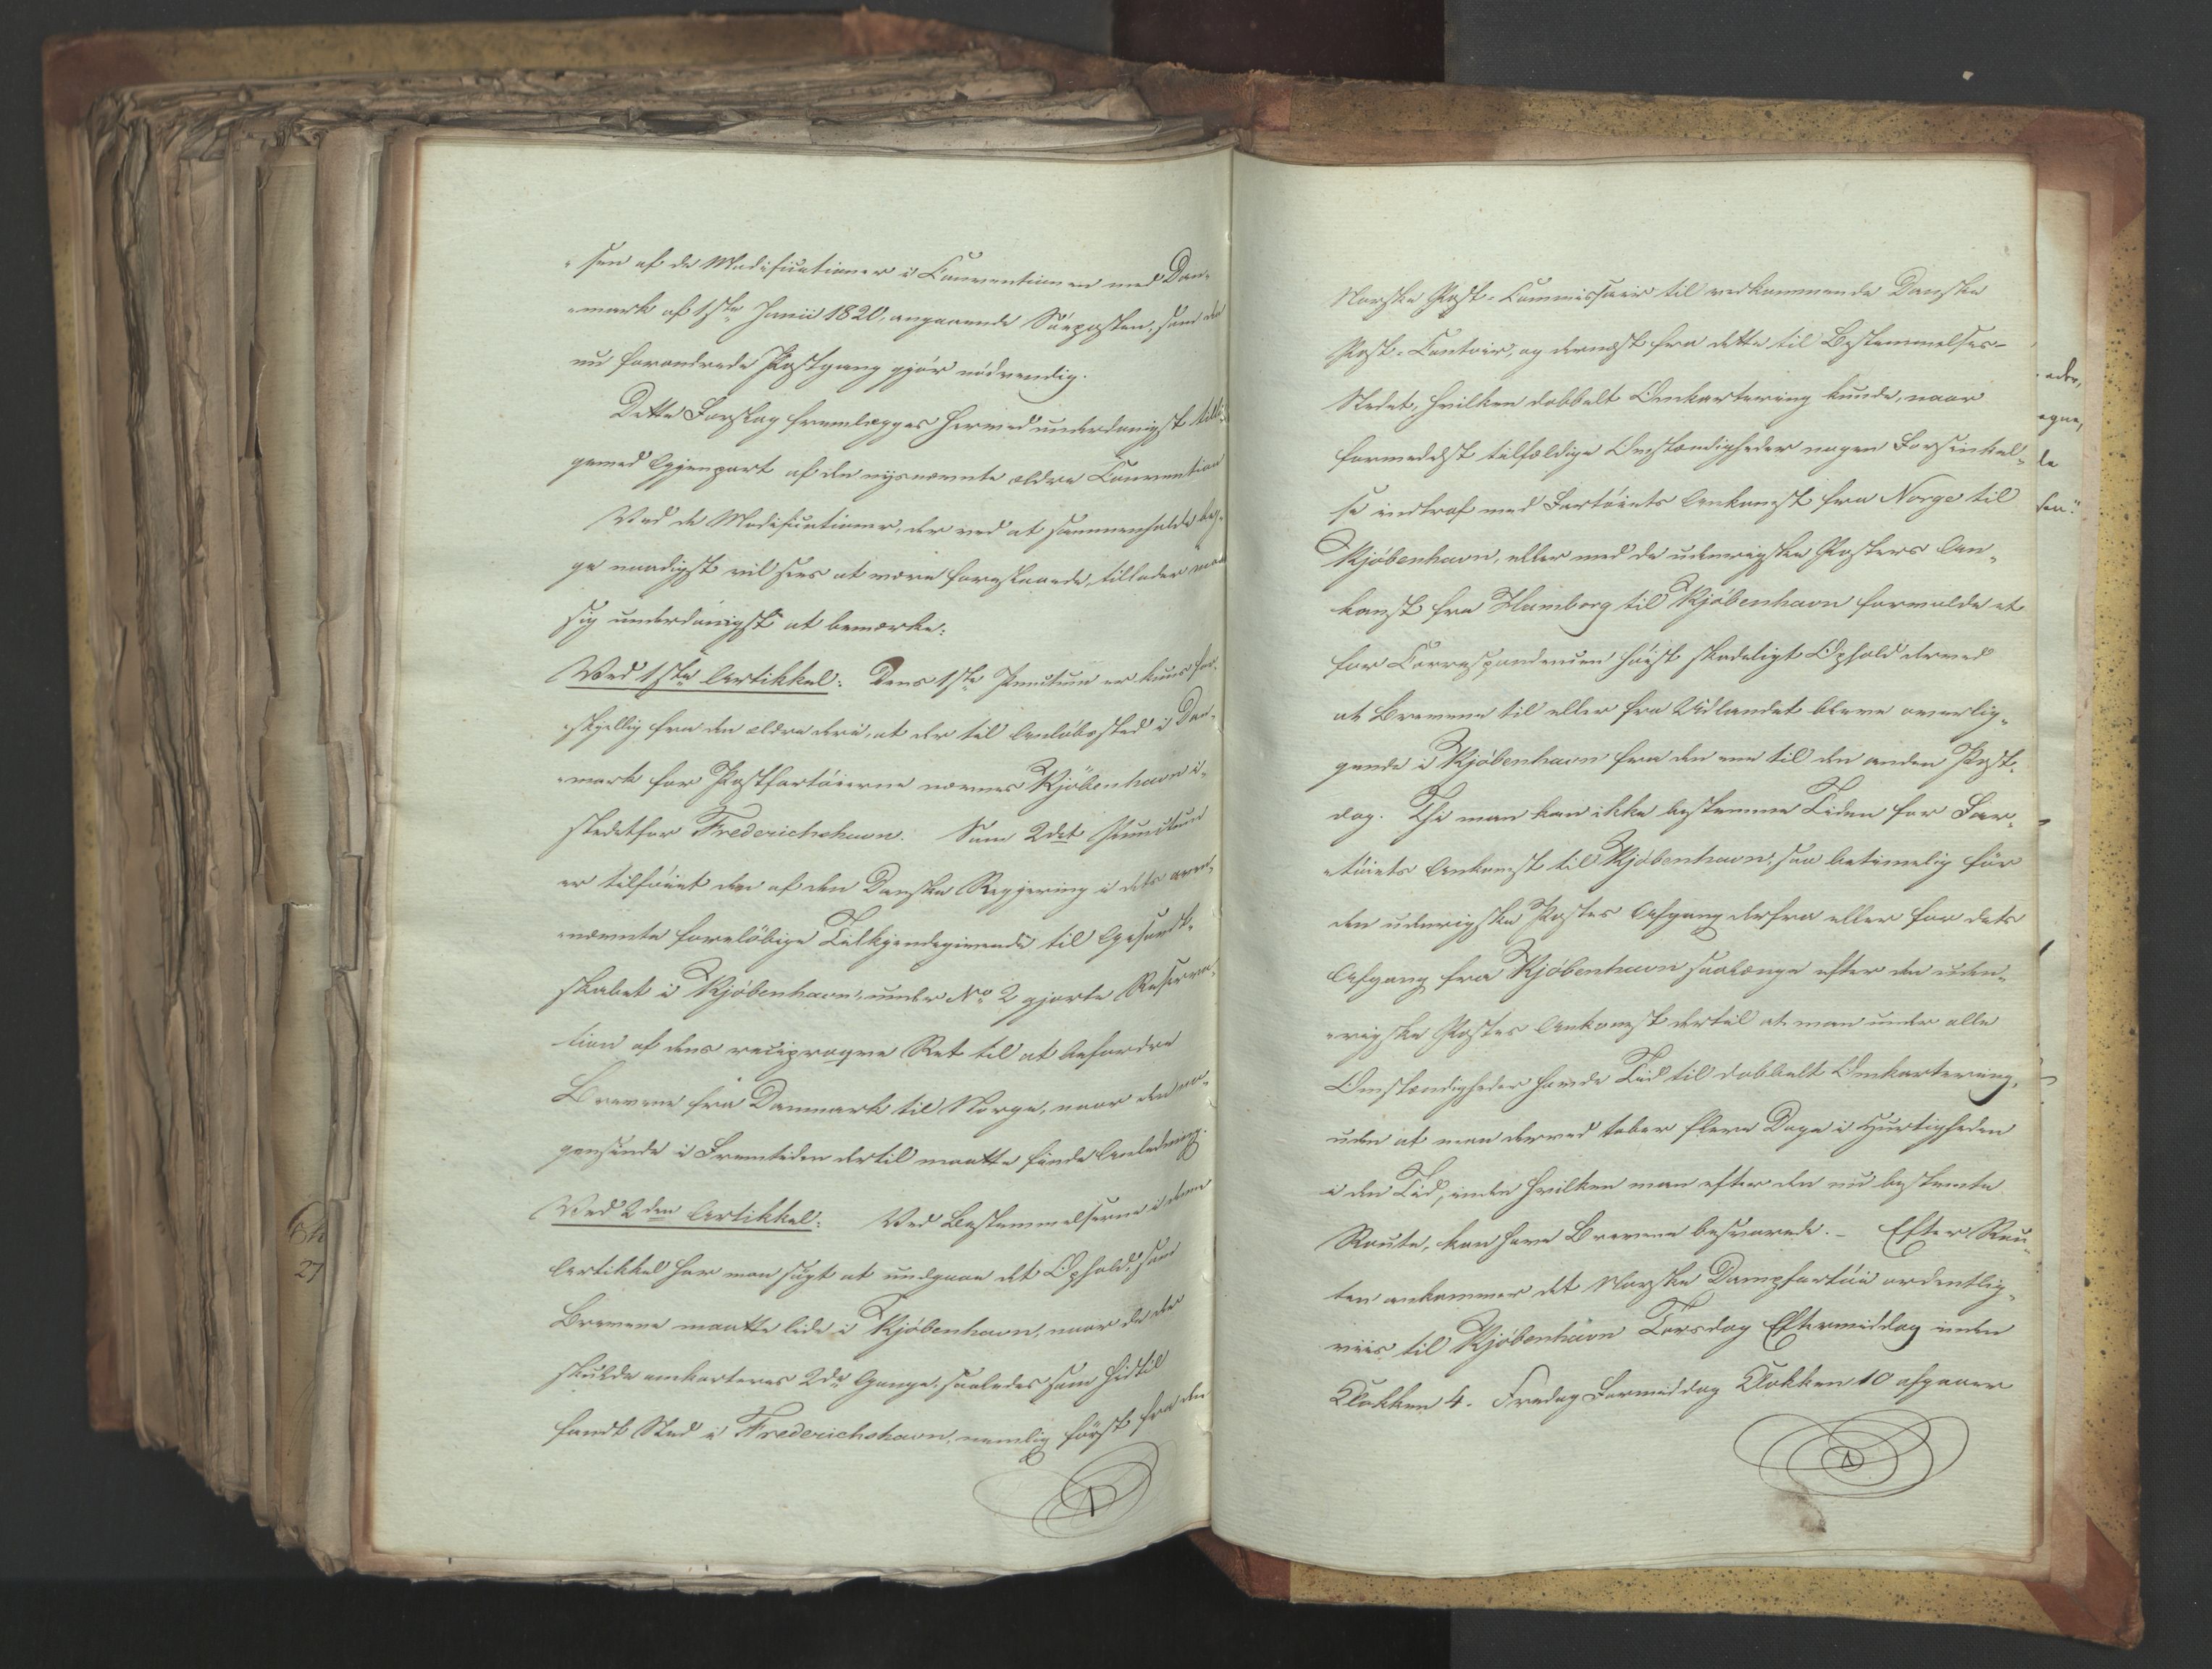 -sen af de Modificationer i Conventionen med Dan-
-mark af 1ste Junii 1820, angaaende Søeposten, som den
nu forandrede Postgang gjør nödvendig.
Dette Forslag fremlægges herved underdanigst tilli-
gemed Gjenpart af den nysnævnte ældre Convention
Ved de Modificationer, der ved at sammenholde beg-
ge naadigst vil sees at være foreslaaede, tillader man
sig underdanigst at bemærke:
Ved 1ste Artikkel: Dens 1ste Punctum er kuns for-
-skjellig fra den ældre deri, at der til Anløbssted i Dan-
-mark for Postfartöierne nævnes Kjöbenhavn i-
stedetfor Frederichshavn. Som 2det Punctum
er tilföiet den af den Danske Regjering i dets oven-
-nævnte foreløbige Tilkjendegivende til Gesandt-
skabet i Kjöbenhavn, under No 2 gjorte Reserva-
tion af dens reciproqve Ret til at befordre
Brevene fra Danmark til Norge, naar den no-
gensinde i Fremtiden dertil maatte finde Anledning.
Ved 2den Artikkel: Ved Bestemmelserne i denne
Artikkel har man søgt at undgaae det Ophold, som
Brevene maatte lide i Kjöbenhavn, naar de der
skulde omkarteres 2de Gange, saaledes som hidtil
fandt Sted i Frederichshavn, nemlig först fra den
Norske Post-Commissair til vedkommende Danske
Post-Contoir, og dernæst fra dette til Bestemmelses-
Stedet, hvilken dobbelt Omkartering kunde, naar
formedelst tilfældige Omstændigheder nogen Forsinkel-
se indtraf med Fartöiets Ankomst fra Norge til
Kjöbenhavn, eller med de udenrigske Posters An-
komst fra Hamborg til Kjöbenhavn formelde et
for Correspondencen höist skadeligt Ophold derved
at Brevene til eller fra Udlandet bleve overlig-
gende i Kjöbenhavn fra den ene til den anden Post-
dag. Thi man kan ikke bestemme Tiden for Far-
-töiets Ankomst til Kjöbenhavn, saa betimelig för
den udenrigske Postes Afgang derfra eller for dets
Afgang fra Kjöbenhavn saalænge efter den uden-
-rigske Postes Ankomst dertil at man under alle
Omstændigheder havde Tid til dobbelt Omkartering,
uden at man derved taber flere Dage i Hurtigheden
i den Tid, inden hvilken man efter den nu bestemte
Route, kan have Brevene besvarede. - Efter Rou-
ten ankommer det Norske Dampfartöi ordentlig-
viis til Kjöbenhavn Torsdag Eftermiddag inden
Klokken 4. Fredag Formiddag Klokken 10 afgaaer